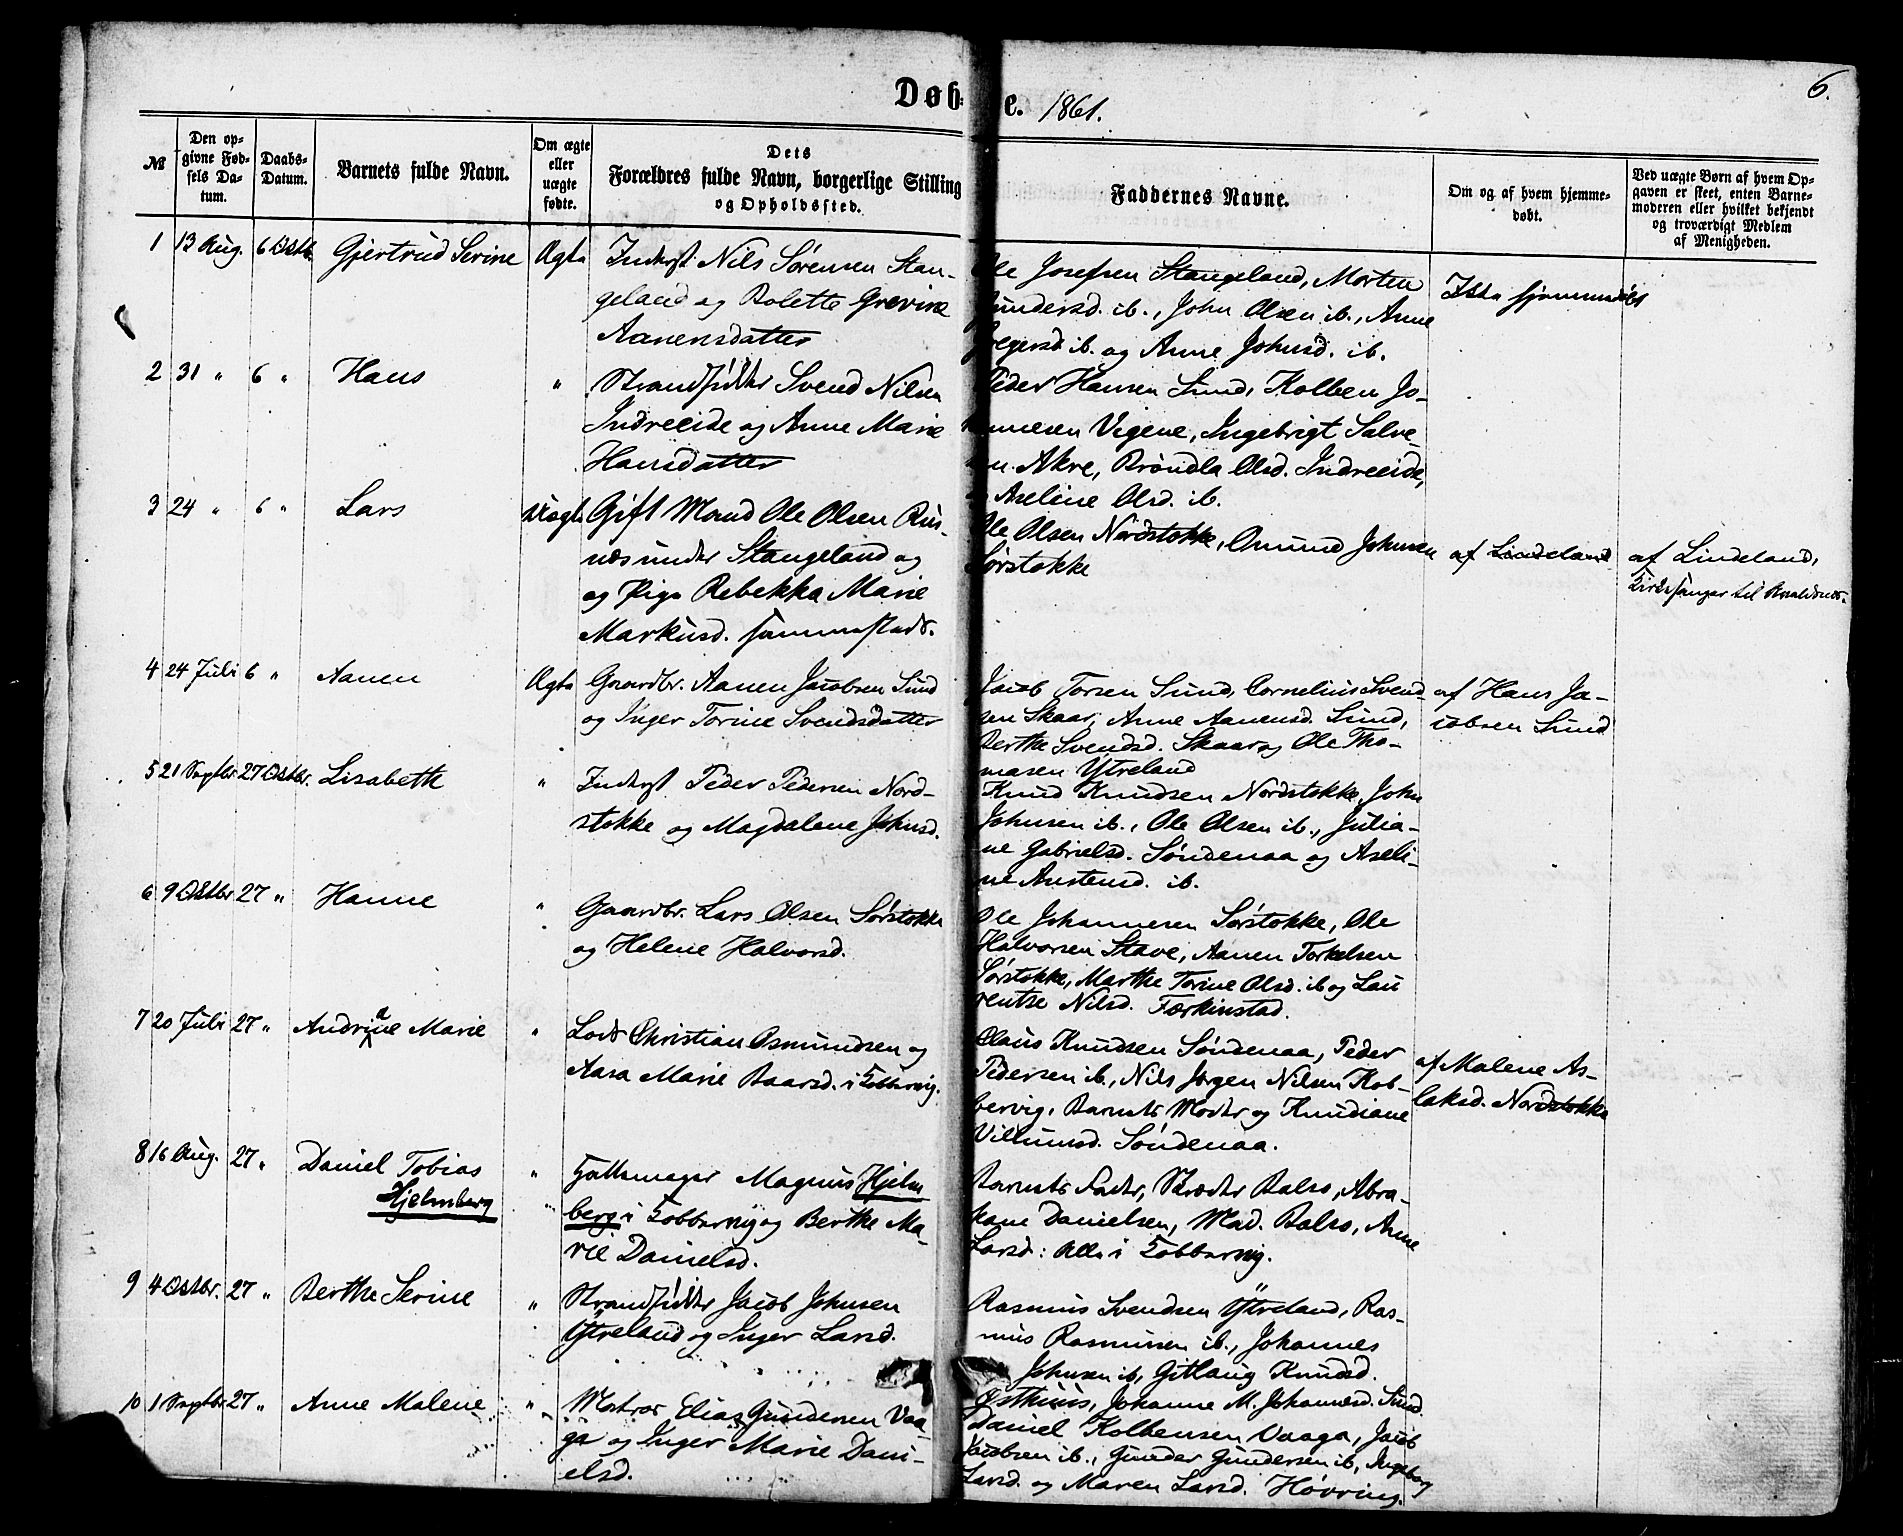 Døbte. 1861.
6.
№
Den opgivne Fødsels Datum.
Daabs-Datum.
Barnets fulde Navn.
Om ægte eller uægte fødte.
Dets Forældres fulde Navn, borgerlige Stilling og Opholdssted.
Faddernes Navne.
Om og af hvem hjemmedøbt.
Ved uægte Børn af hvem Opgaven er skeet, enten Barnemoderen eller hvilket bekjendt og troværdigt Medlem af Menigheden.
1 13 Aug. 6 Octb. Gjertrud Serine Ægte
Inderst Nils Sørensen Stan-
geland og Bolette Grevine
Aanensdatter
Ole Josefsen Stangeland, Morten
Gundersd. ib., John Olsen ib., Anne
ib. og Anne Johnsd. ib.
Ikke hjemmedøbt
2 31 " 6 " Hans "
Strandsidder Svend Nilsen
Indreeide og Anne Marie
Hansdatter
Peder Hansen Sund, Kolben Jo-
hannesen Vigene, Ingebrigt Salve-
sen Akre, Brøndla Olsd. Indreeide,
og Aseline Olsd. ib.
3 24 " 6 " Lars Uægte
Gift Mand Ole Olsen Rus-
næs under Stangeland og
og Pige Rebekka Marie
Markusd. sammestads.
Ole Olsen Nordstokke, Omund Johnsen
Sørstokke
af Lindeland
af Lindeland,
Kirkesanger til
4 24 Juli 6 " Aanen Ægte
Gaardbr. Aanen Jacobsen Sund
og Inger Torine Svendsdatter
Jacob Torsen Sund, Cornelius Svend-
sen Skaar, Anne Aanensd. Sund,
Berthe Svendsd. Skaar og Ole Tho-
masen Ytreland
af Hans Ja-
cobsen Sund
5 21 Septbr. 27 Octbr. Lisabeth "
Inderst Peder Pedersen Nord-
stokke og Magdalene Johnsd.
Knud Knudsen Nordstokke, John
Johnsen ib., Ole Olsen ib., Julia-
ne Gabrielsd. Søndenaa og Aseli-
ne Anstensd. ib.
6 9 Octbr 27 " Hanne "
Gaardbr. Lars Olsen Sørstokke
og Helene Halvorsd.
Ole Johannesen Sørstokke, Ole
Halvorsen Stave, Aanen Torkelsen
Sørstokke, Marthe Torine Olsd. ib og Lau
rentse Nilsd. Færkinstad.
7 20 Juli 27 " Andrine Marie "
Lods Christian Osmundsen og
Aasa Marie Baarsd. i Kobbervig.
Claus Knudsen Søndenaa, Peder
Pedersen ib., Nils Jørgen Nilsen Kob-
bervig, Barnets Moder og Knudiane
Villumsd. Søndenaa.
af Malene As-
laksd. Nordstokke
8 16 Aug. 27 " Daniel Tobias
Hjelmberg
"
Hattemager Magnus Hjelm
berg i Kobbervig og Berthe Ma-
rie Danielsd.
Barnets Fader, Skræder Balso, Abra-
ham Danielsen, Mad. Balso, Anne
Larsd: Alle i Kobbervig.
9 4 Octbr. 27 " Berthe Serine "
Strandsidder Jacob Johnsen
Ytreland og Inger Larsd.
Rasmus Svendsen Ytreland, Ras-
mus Rasmussen ib., Johannes
Johnsen ib, Gitlaug Knudsd.
Østhuus, Johanne M. Johannesd. Sund.
10 1 Septbr 27 " Anne Malene "
Matros Elias Gundersen Vaa
ga og Inger Marie Dani-
elsd.
Daniel Kolbensen Vaaga, Jacob
Jacobsen ib., Gunder Gundersen ib, Ingeborg
Larsd. og Maren Larsd. Høvring.